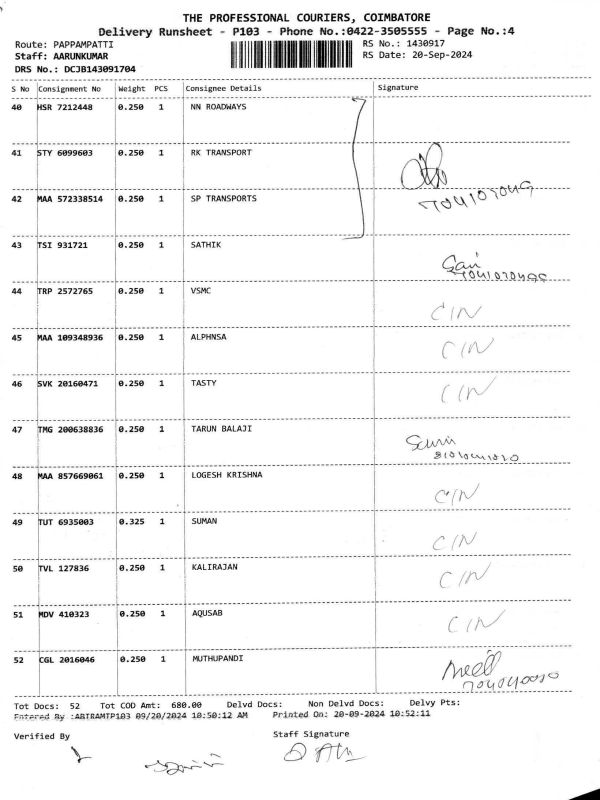 THE PROFESSIONAL COURIERS, COIMBATORE
Delivery Runsheet - P103 - Phone No.:0422-3505555 - Page No.:4
Route: PAPPAMPATTI RS No.: 1430917
Staff: AARUNKUMAR RS Date: 20-Sep-2024
DRS No.: DCJB143091704
S No Consignment No Weight PCS Consignee Details Signature
40 HSR 7212448 0.250 1 NN ROADWAYS
41 STY 6099603 0.250 1 RK TRANSPORT
42 MAA 572338514 0.250 1 SP TRANSPORTS
43 TSI 931721 0.250 1 SATHIK
44 TRP 2572765 0.250 1 VSMC C/N
45 MAA 109348936 0.250 1 ALPHNSA C/N
46 SVK 20160471 0.250 1 TASTY C/N
47 TMG 200638836 0.250 1 TARUN BALAJI
48 MAA 857669061 0.250 1 LOGESH KRISHNA C/N
49 TUT 6935003 0.325 1 SUMAN C/N
50 TVL 127836 0.250 1 KALIRAJAN C/N
51 MDV 410323 0.250 1 AQUSAB C/N
52 CGL 2016046 0.250 1 MUTHUPANDI
Tot Docs: 52 Tot COD Amt: 680.00 Delvd Docs: Non Delvd Docs: Delvy Pts:
Entered By :ABIRAMTP103 09/20/2024 10:50:12 AM Printed On: 20-09-2024 10:52:11
Verified By Staff Signature